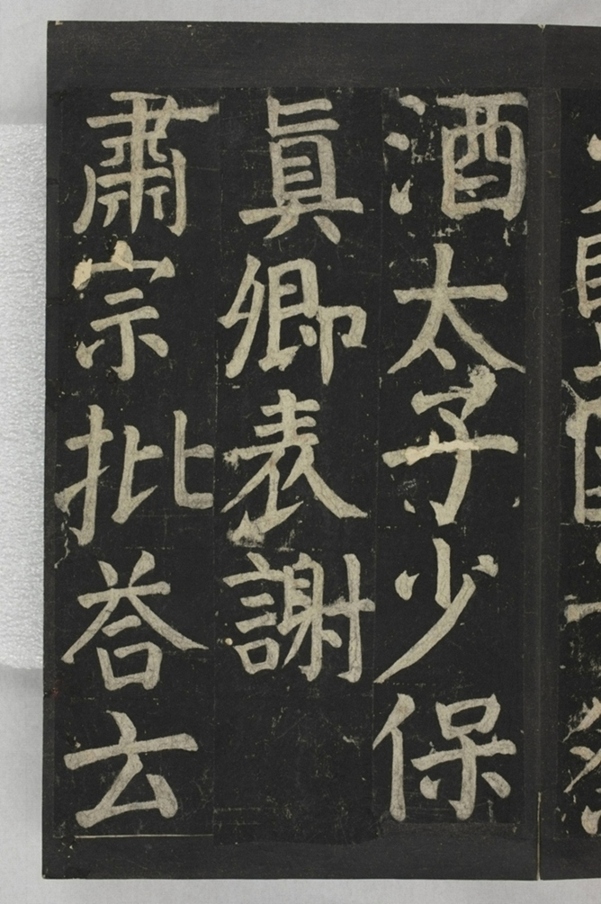 酒太子少保
真卿表謝
肅宗批荅云